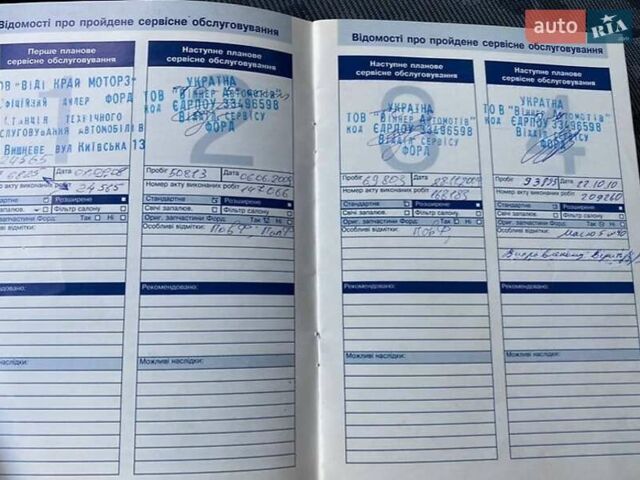 auto RIA
Відомості про пройдене сервісне обслуговування
Перше планове
сервісне обслуговування
ТОВ "ВІДІ КРАЙ МОТОРЗ"
ОФІЦІЙНИЙ ДИЛЕР ФОРД
СТАНЦІЯ ТЕХНІЧНОГО
ОБСЛУГОВУВАННЯ АВТОМОБІЛІВ
ВИШНЕВЕ ВУЛ КИЇВСЬКА 13
24565
Дата
24565
Стандартне
Розширене
Свічі запалюв.
Фільтр салону
Ориг. запчастини Форд: Так Ні
Особливі відмітки:
Рекомендовано:
Можливі наслідки:
Наступне планове
сервісне обслуговування
УКРАЇНА
ТОВ "ВІННЕР АВТОМОТІВ"
КОД ЄДРПОУ 33496598
ВІДДІЛ СЕРВІСУ
ФОРД
Пробіг 50813 Дата 06.06.2009
Номер акту виконаних робіт
147066
Стандартне
Розширене
Свічі запалюв.
Фільтр салону
Ориг. запчастини Форд: Так Ні
Особливі відмітки:
Рекомендовано:
Можливі наслідки:
Відомості про пройдене сервісне обслуговування
Наступне планове
сервісне обслуговування
УКРАЇНА
ТОВ "ВІННЕР АВТОМОТІВ"
КОД ЄДРПОУ 33496598
ВІДДІЛ СЕРВІСУ
ФОРД
Пробіг 69803 Дата
Номер акту виконаних робіт
Стандартне
Розширене
Свічі запалюв.
Фільтр салону
Ориг. запчастини Форд: Так Ні
Особливі відмітки:
Рекомендовано:
Можливі наслідки:
Наступне планове
сервісне обслуговування
УКРАЇНА
ТОВ "ВІННЕР АВТОМОТІВ"
КОД ЄДРПОУ 33496598
ВІДДІЛ СЕРВІСУ
ФОРД
Пробіг Дата 22.10.10
Номер акту виконаних робіт
209260
Стандартне
Розширене
Свічі запалюв.
Фільтр салону
Ориг. запчастини Форд: Так Ні
Особливі відмітки:
Рекомендовано:
Можливі наслідки: